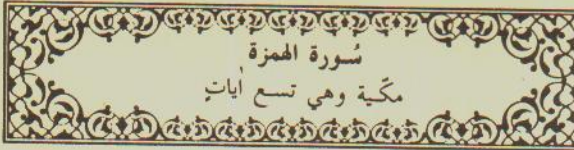 سُورة الهمزة
مكّية وهي تسع اٰياتٍ